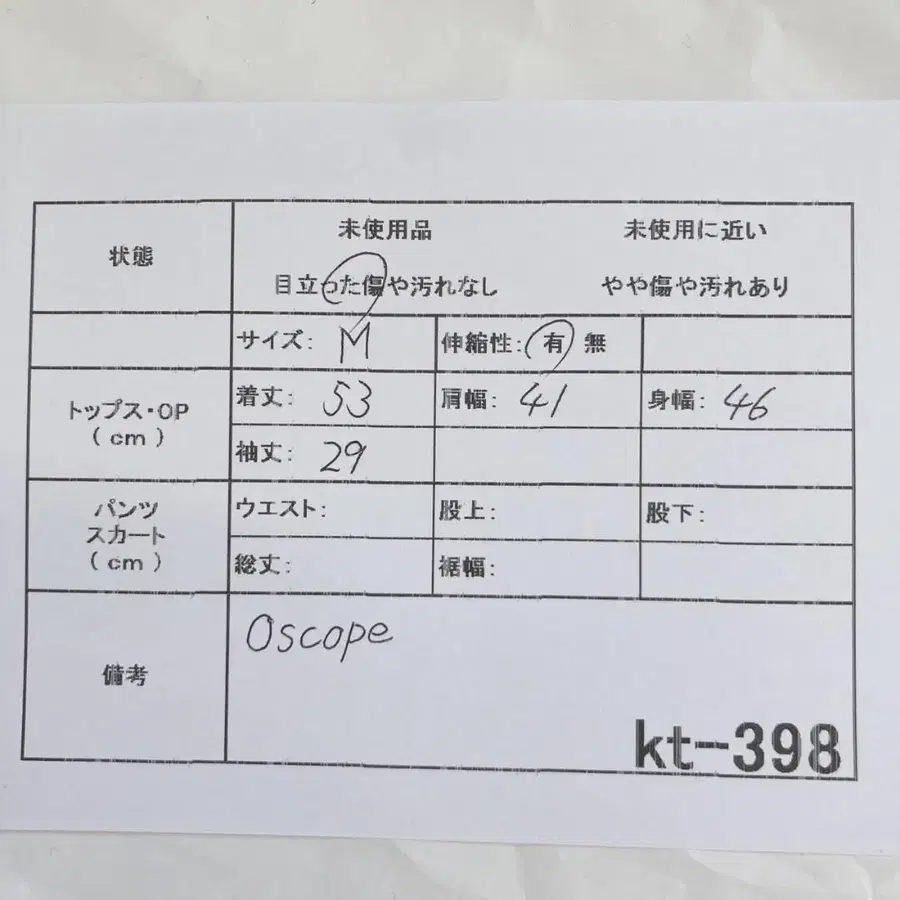 状態
未使用品 未使用に近い
目立った傷や汚れなし やや傷や汚れあり
サイズ: M 伸縮性: 有 無
トップス・OP
(cm)
着丈: 53 肩幅: 41 身幅: 46
袖丈: 29
パンツ
スカート
(cm)
ウエスト: 股上: 股下:
総丈: 裾幅:
備考
Oscope
kt-398